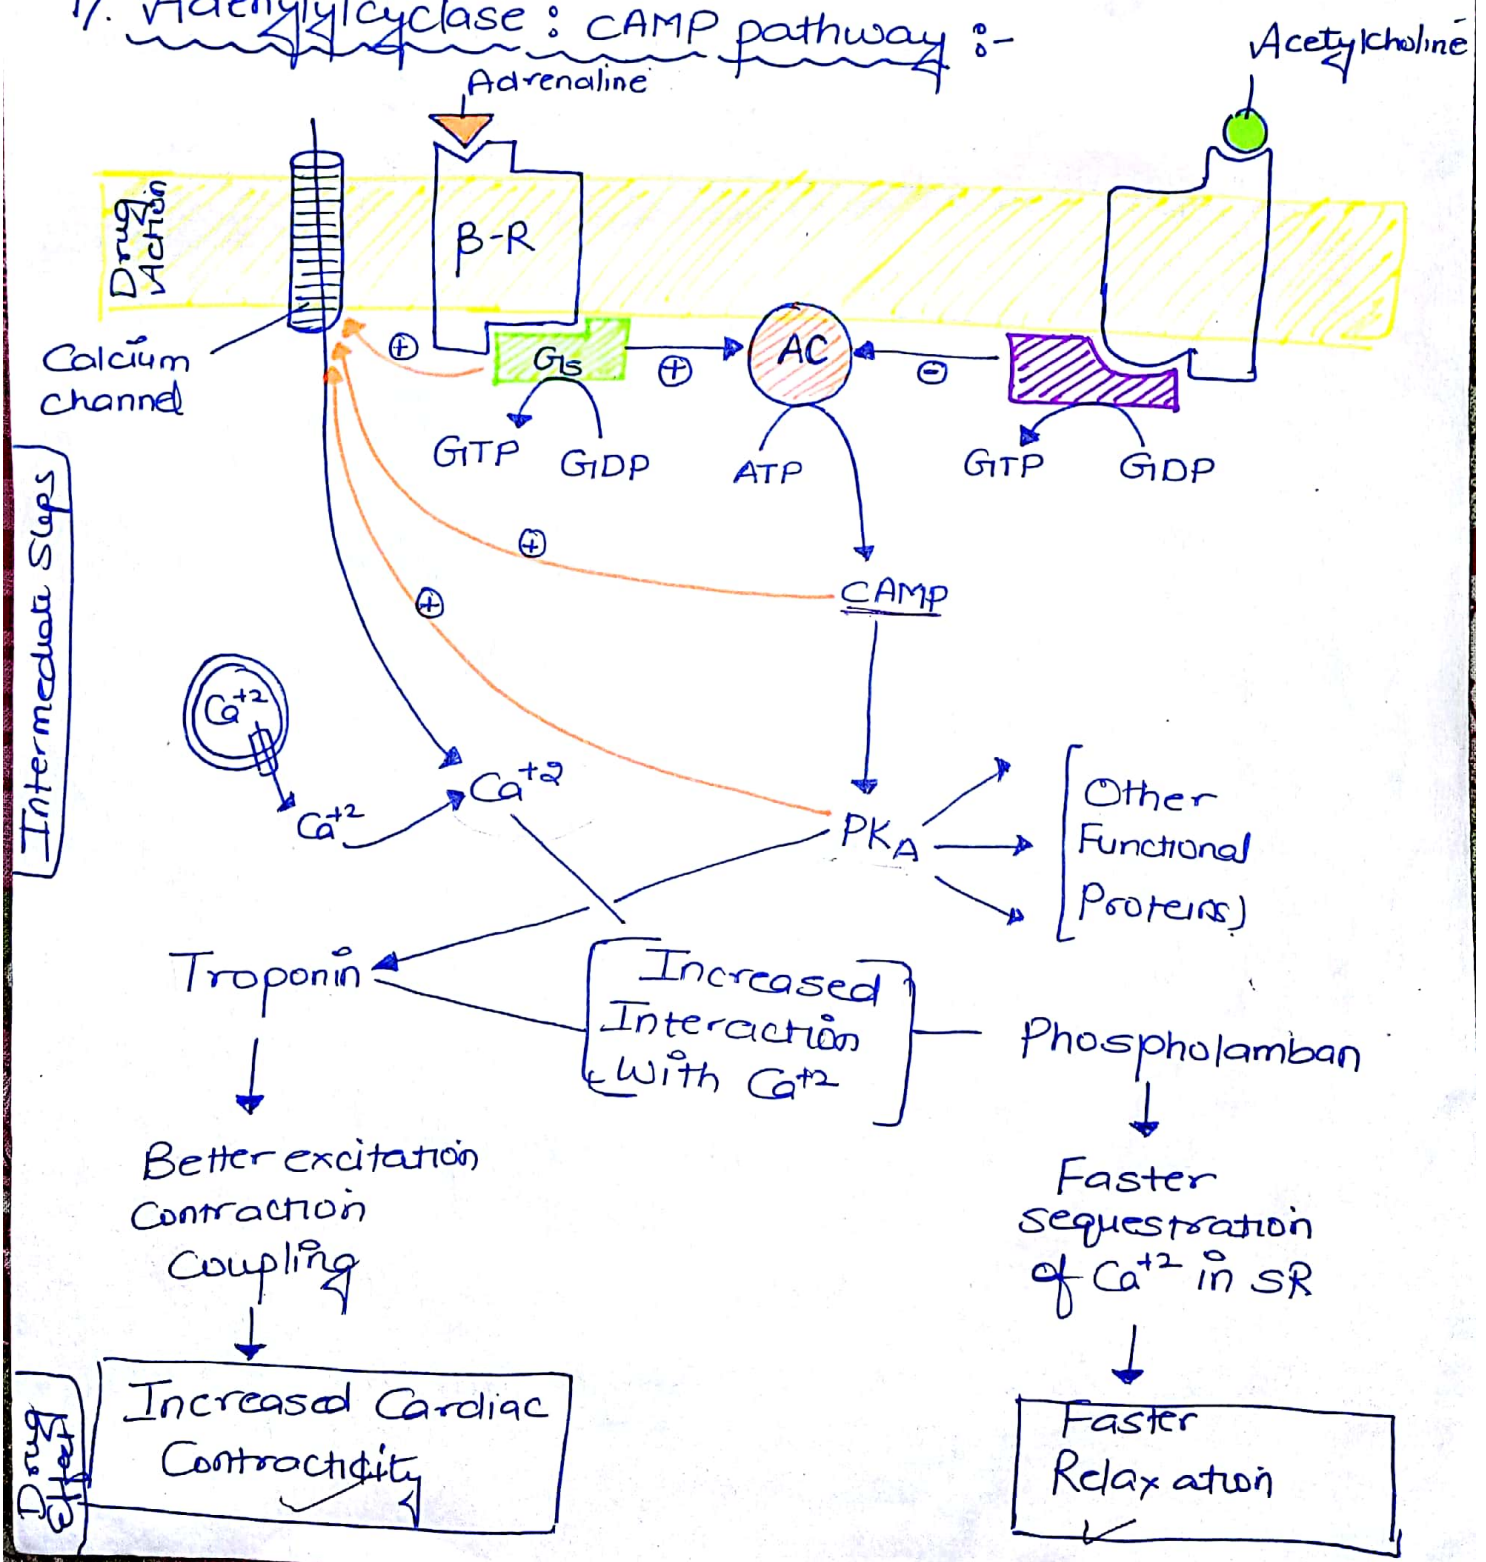 1). Adenylylcyclase : cAMP pathway :-
Adrenaline
Acetylcholine
Drug
Action
β-R
Calcium
channel
+
Gs
+
AC
-
GTP
GDP
ATP
GTP
GDP
Intermediate Steps
+
cAMP
+
Ca+2
Ca+2
Ca+2
PKA
Other
Functional
Proteins)
Troponin
Increased
Interaction
with Ca+2
Phospholamban
Better excitation
Contraction
Coupling
Faster
sequestration
of Ca+2 in SR
Drug
Effect
Increased Cardiac
Contractility
Faster
Relaxation